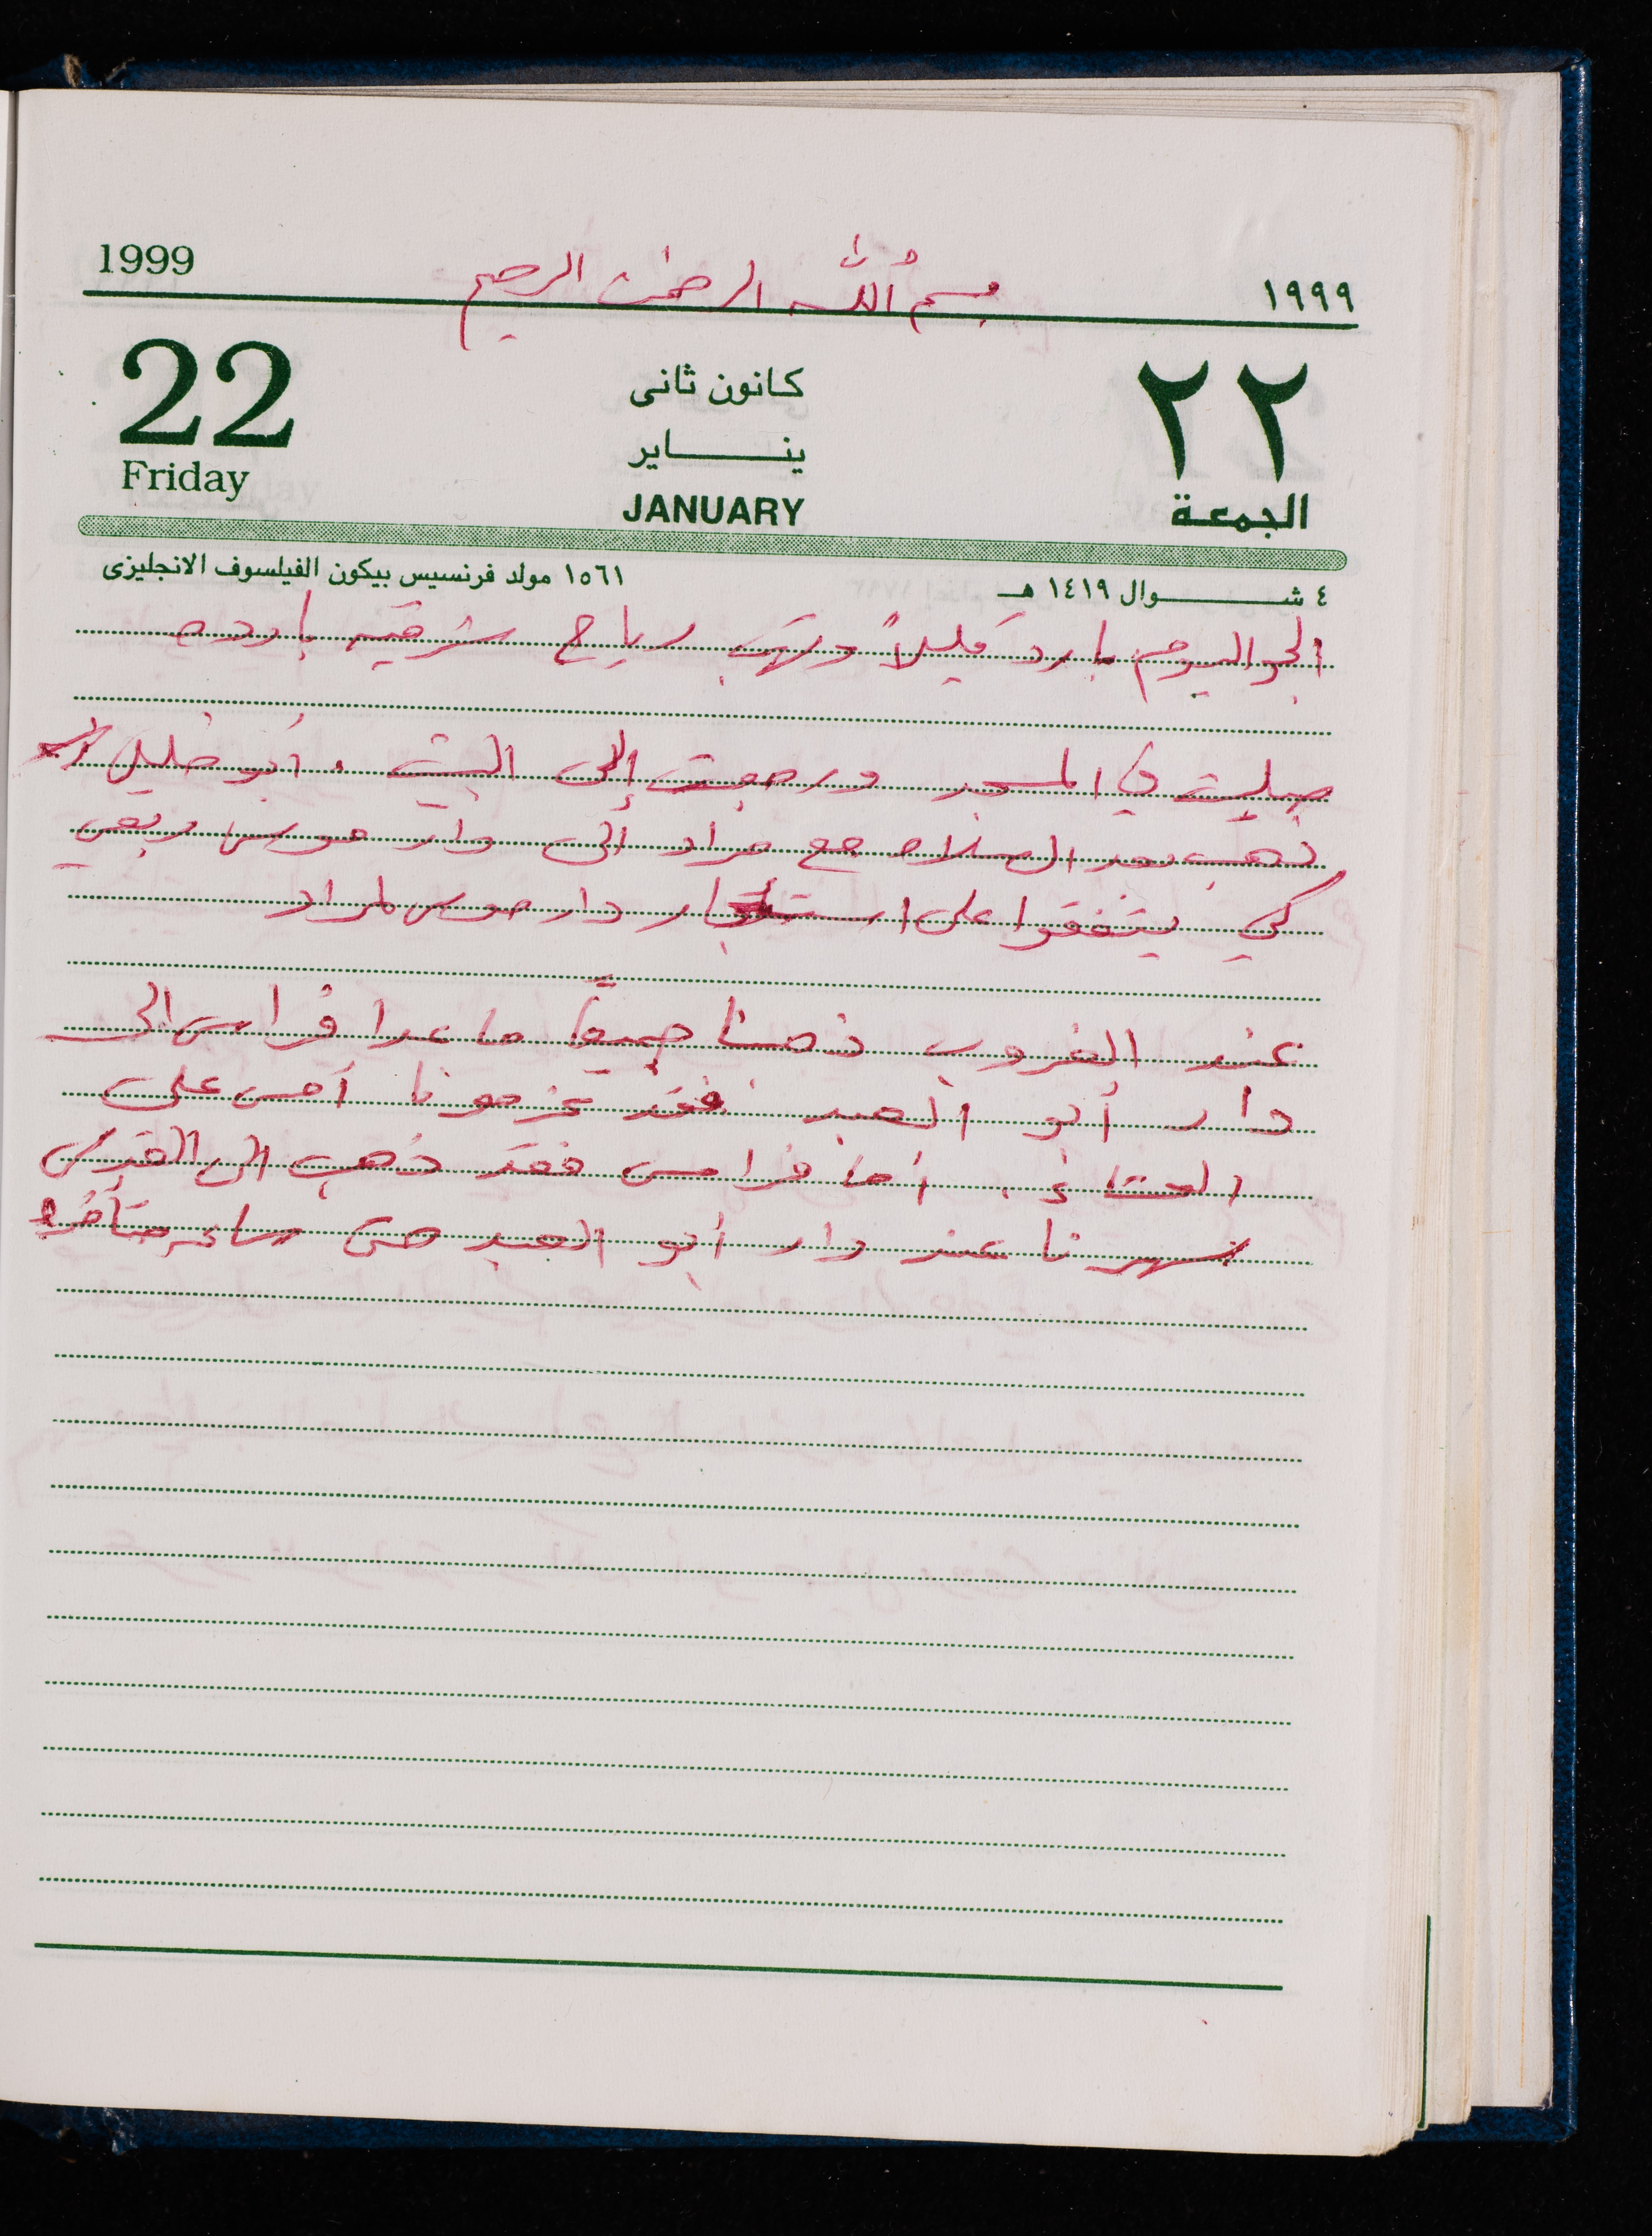 1999
بسم الله الرحمن الرحيم
١٩٩٩
22
Friday
كانون ثانى
يناير
JANUARY
٢٢
الجمعة
٤ شوال ١٤١٩ هـ
١٥٦١ مولد فرنسيس بيكون الفيلسوف الانجليزى
الجو اليوم بارد قليلاً وتهب رياح شرقيه بارده
صليت في المسجد ورجعت إلى البيت . أبو خليل
ذهب بعد الصلاه مع مراد الى دار موسى ربعي
كي يتفقوا على استئجار دار موسى لمراد
عند الغروب ذهبنا جميعًا ما عدا فراس الى
دار أبو العبد فقد عزمونا أمس على
العشاء . أما فراس فقد ذهب الى القدس
سهرنا عند دار أبو العبد حتى ساعه متأخره